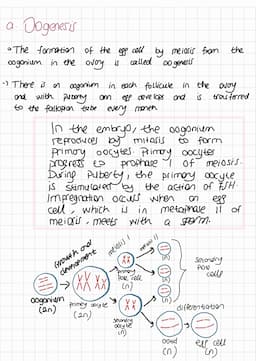 a Oogenesis
• The formation of the egg cell by meiosis from the
oogonium in the ovary is called oogenesis
• There is an oogonium in each follicule in the ovary
and with puberty an egg develops and is transferred
to the fallopian tube every month
In the embryo, the oogonium
reproduces by mitosis to form
primary oocytes. Primary oocytes
progress to prophase 1 of meiosis.
During Puberty, the primary oocyte
is stimulated by the action of FSH
Impregnation occurs when an egg
cell, which is in metaphase II of
meiosis, meets with a sperm.
Growth and
development
meiosis I
meiosis II
oogonium
(2n)
primary oocyte
(2n)
primary
pole cell
(n)
secondary
oocyte
(n)
(n)
(n)
(n)
secondary
pole
cells
differentiation
ootid
(n)
egg cell
(n)